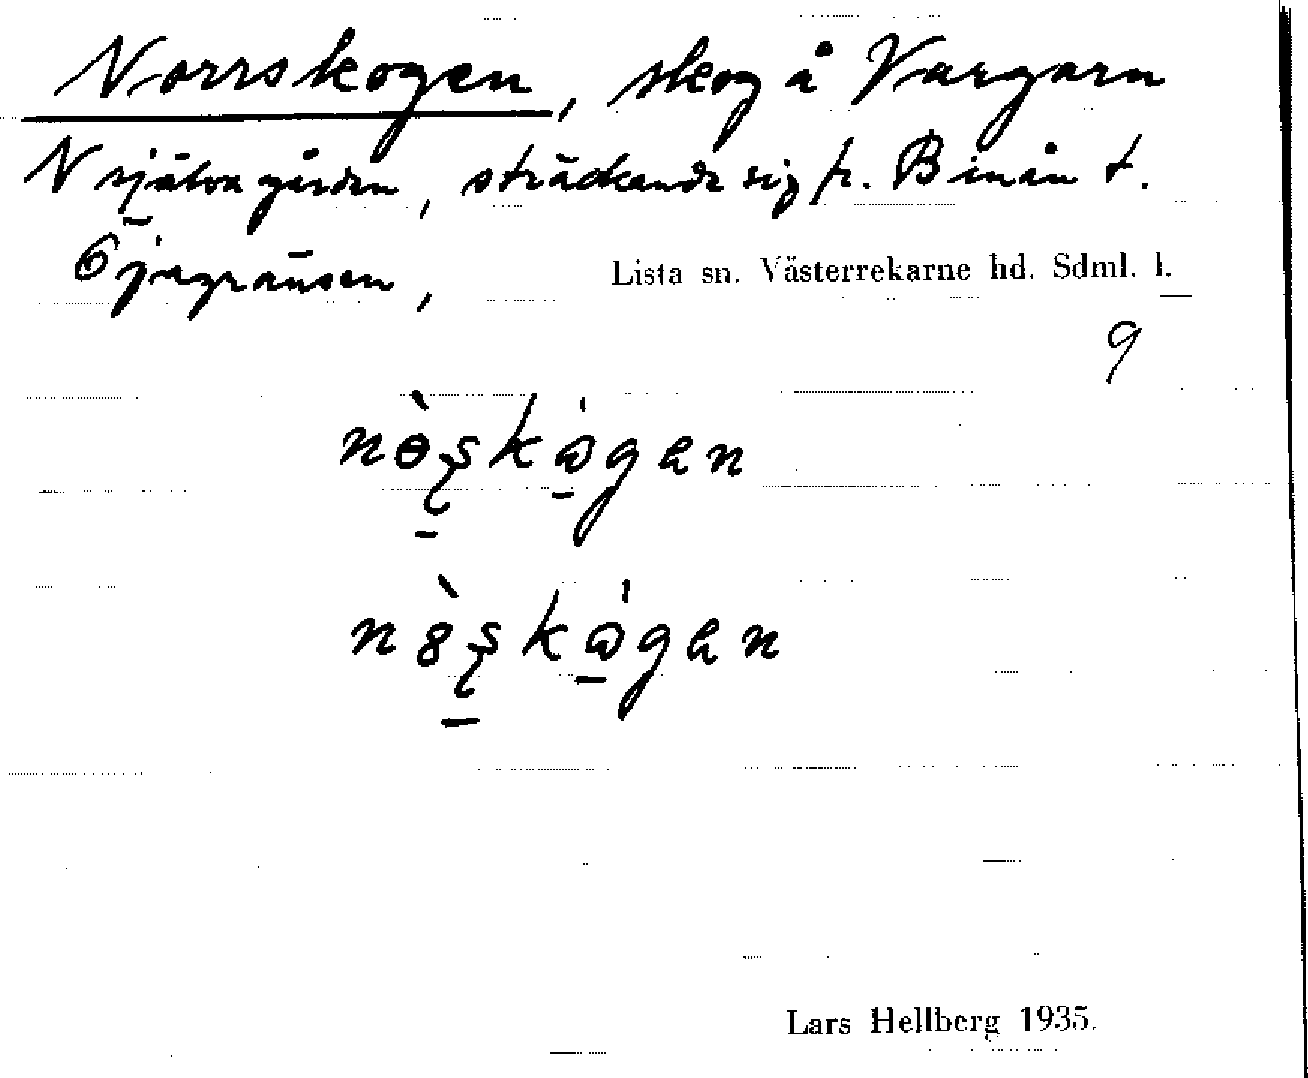 Norrskogen, skog å Vargarn
N själva gården, sträckande sig fr. Binån t.
Öjagränsen,
Lista sn. Västerrekarne hd. Sdml. l.
9
Lars Hellberg 1935.